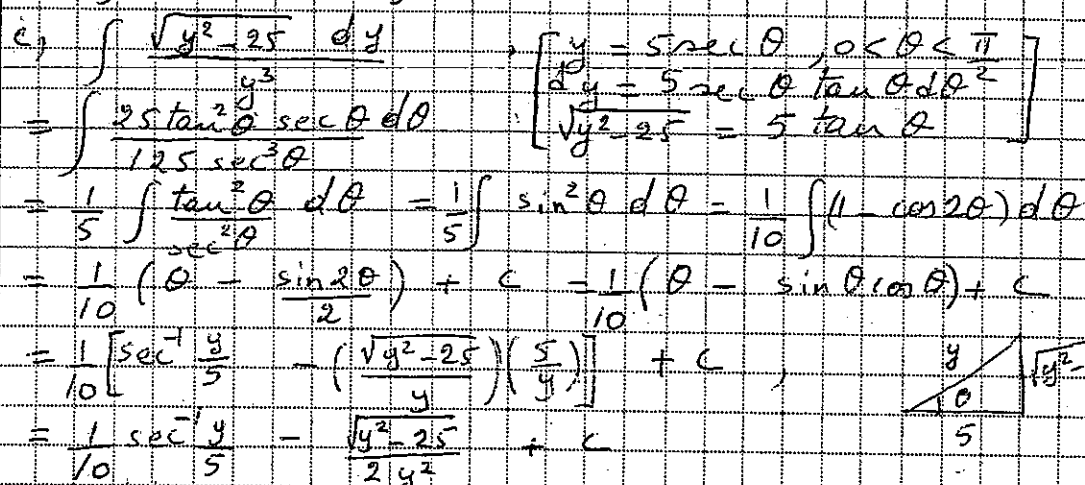 c, ∫ √(y² - 25) dy / y³ , [ y = 5 sec θ , 0 < θ < π/2
dy = 5 sec θ tan θ dθ
= ∫ 25 tan² θ sec θ dθ / 125 sec³ θ √(y² - 25) = 5 tan θ ]
= 1/5 ∫ tan² θ / sec² θ dθ = 1/5 ∫ sin² θ dθ = 1/10 ∫ (1 - cos 2θ) dθ
= 1/10 (θ - sin 2θ / 2) + c = 1/10 (θ - sin θ cos θ) + c
= 1/10 [sec⁻¹ y/5 - (√(y² - 25) / y)(5/y)] + c , y √y²-
θ
= 1/10 sec⁻¹ y/5 - √(y² - 25) / 2y² + c 5